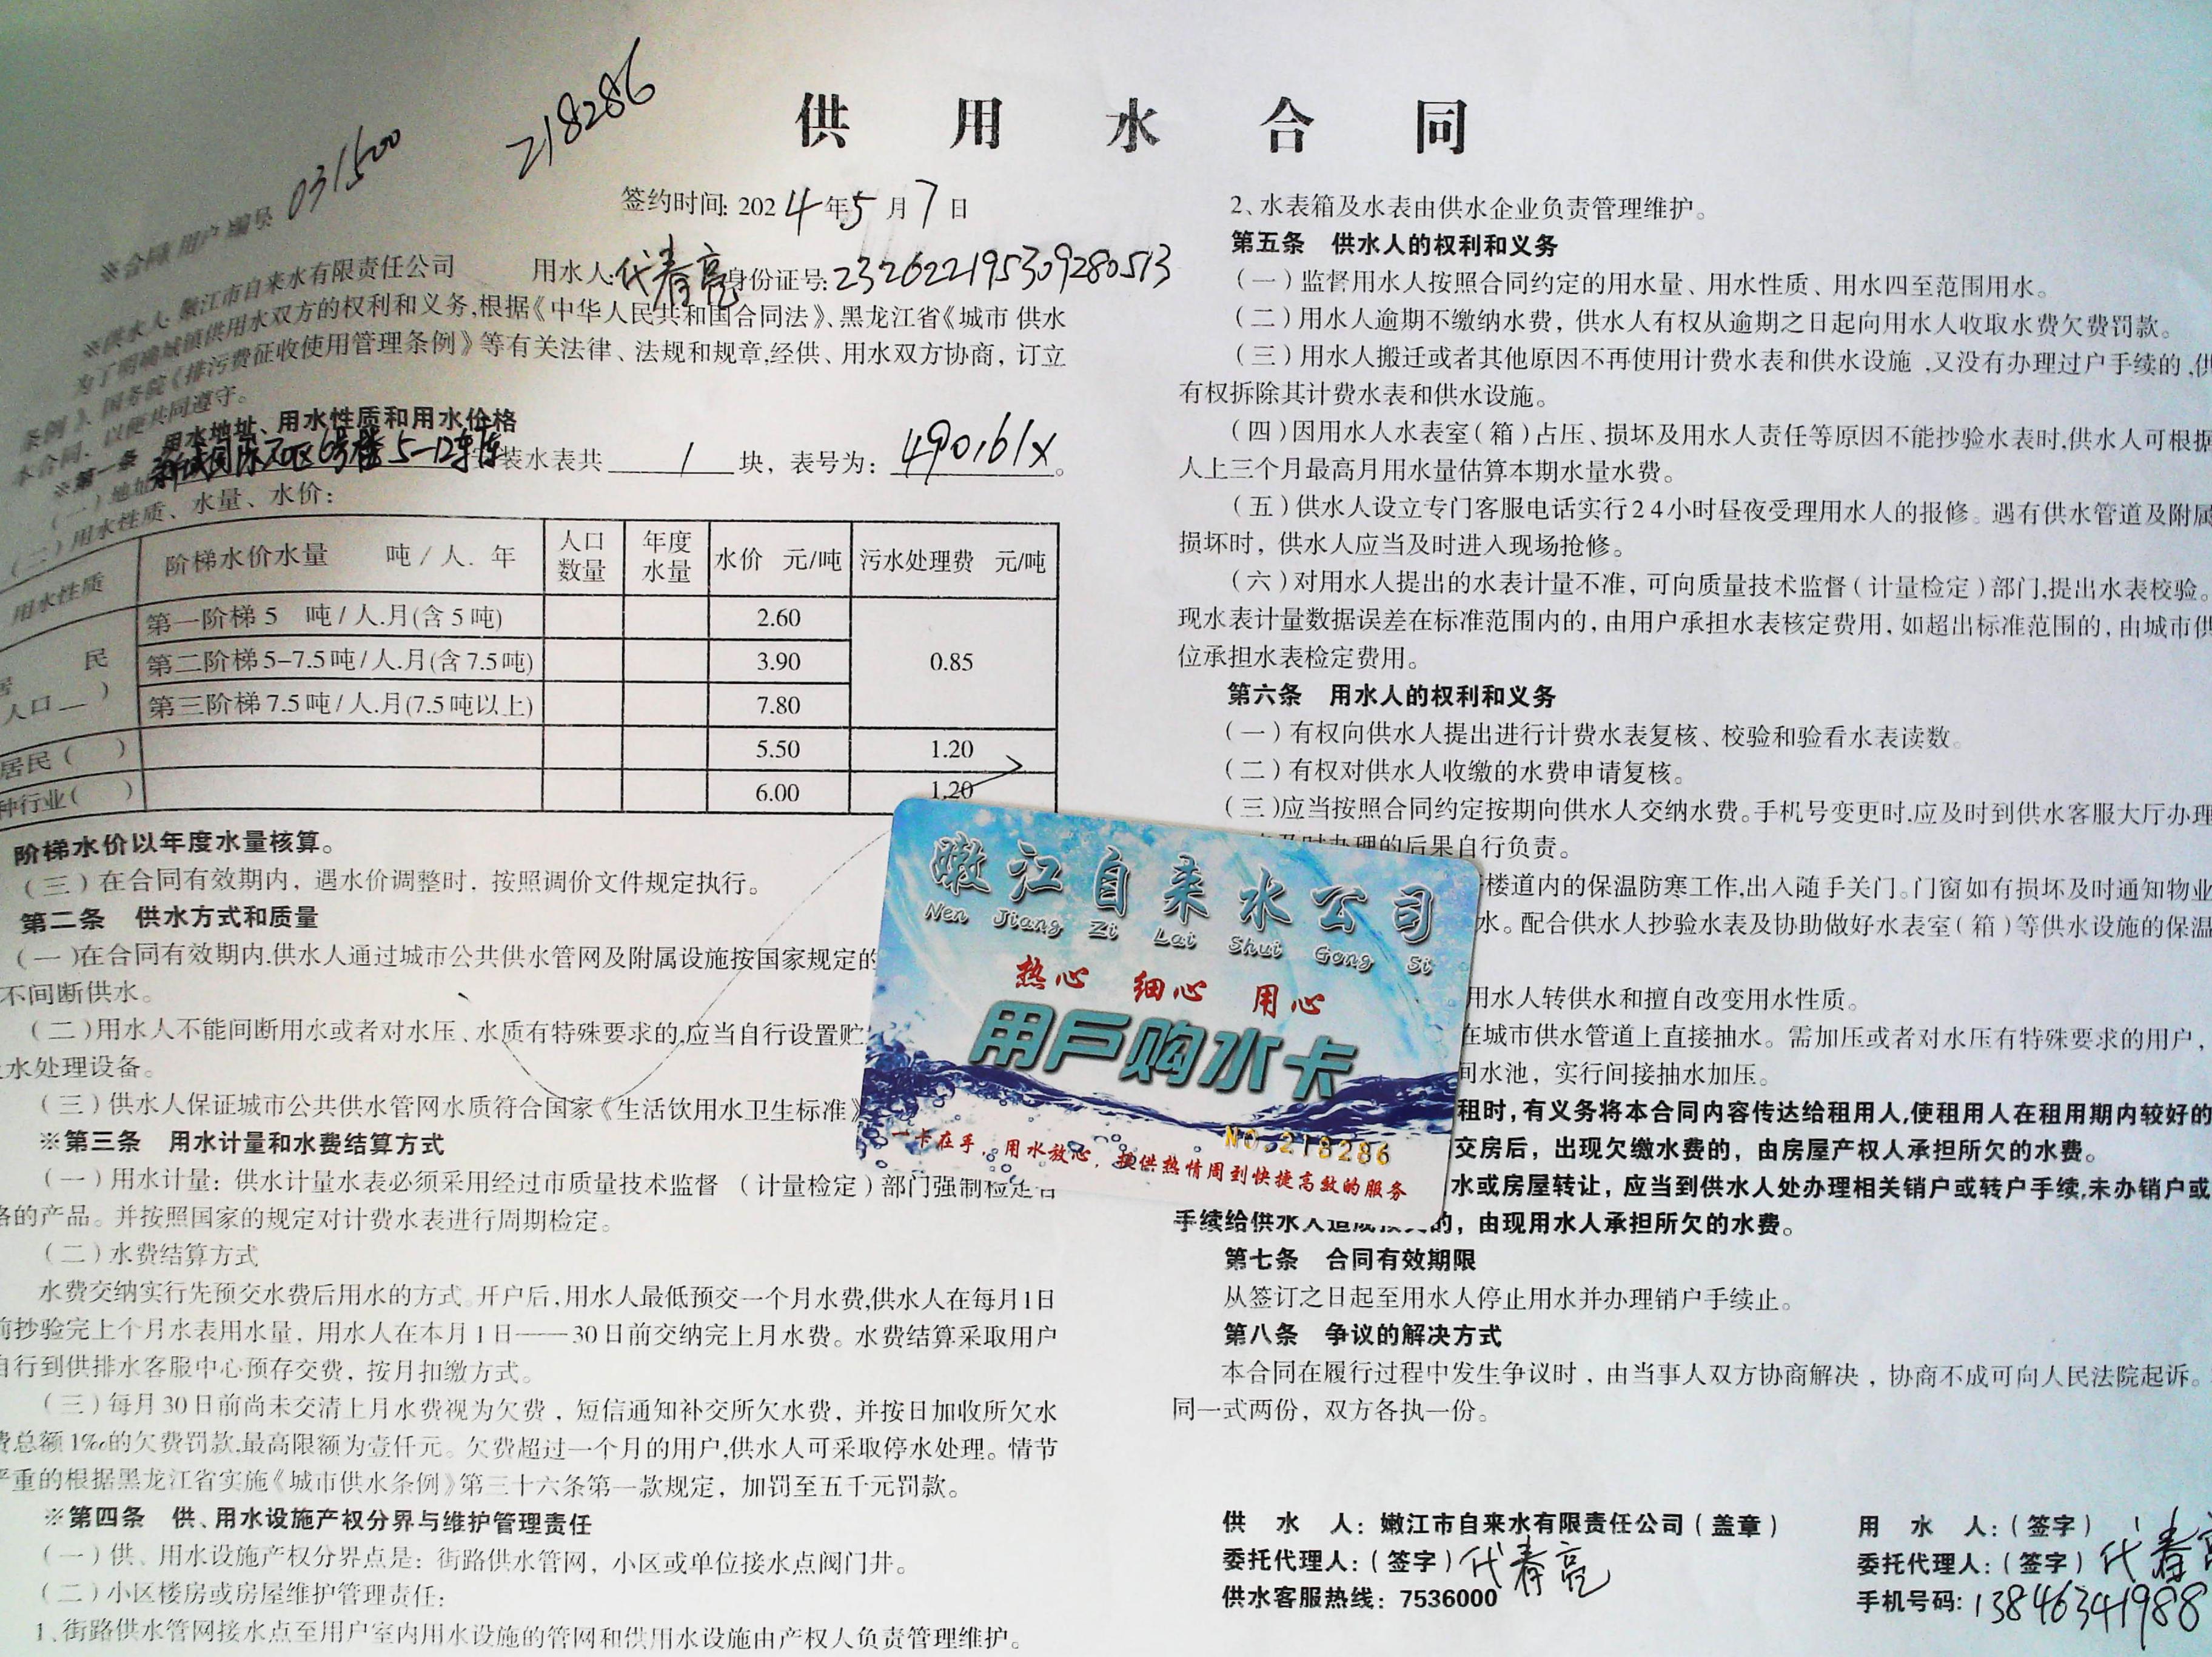 供用水合同
218286
※合同(用户)编号 031500
签约时间: 2024年5月7日
※供水人:嫩江市自来水有限责任公司 用水人:代春亮 身份证号:232622195309280513
为了明确城镇供用水双方的权利和义务,根据《中华人民共和国合同法》、黑龙江省《城市供水
条例》、国务院《排污费征收使用管理条例》等有关法律、法规和规章,经供、用水双方协商，订立
本合同，以便共同遵守。
※第一条 用水地址、用水性质和用水价格
(一)地址 6号楼5-12车库 装水表共 1 块，表号为: 490161x。
(二)用水性质、水量、水价:
用水性质 阶梯水价水量 吨/人.年 人口数量 年度水量 水价 元/吨 污水处理费 元/吨
居民 人口__) 第一阶梯5 吨/人.月(含5吨) 2.60 0.85
第二阶梯5-7.5吨/人.月(含7.5吨) 3.90
第三阶梯7.5吨/人.月(7.5吨以上) 7.80
居民( ) 5.50 1.20
种行业( ) 6.00 1.20
阶梯水价以年度水量核算。
(三)在合同有效期内，遇水价调整时．按照调价文件规定执行。
第二条 供水方式和质量
(一)在合同有效期内.供水人通过城市公共供水管网及附属设施按国家规定的
不间断供水。
(二)用水人不能间断用水或者对水压、水质有特殊要求的,应当自行设置贮
水处理设备。
(三)供水人保证城市公共供水管网水质符合国家《生活饮用水卫生标准》
※第三条 用水计量和水费结算方式
(一)用水计量：供水计量水表必须采用经过市质量技术监督 (计量检定)部门强制检定合
格的产品。并按照国家的规定对计费水表进行周期检定。
(二)水费结算方式
水费交纳实行先预交水费后用水的方式。开户后,用水人最低预交一个月水费,供水人在每月1日
前抄验完上个月水表用水量，用水人在本月1日——30日前交纳完上月水费。水费结算采取用户
自行到供排水客服中心预存交费，按月扣缴方式。
(三)每月30日前尚未交清上月水费视为欠费，短信通知补交所欠水费，并按日加收所欠水
费总额1‰的欠费罚款,最高限额为壹仟元。欠费超过一个月的用户,供水人可采取停水处理。情节
严重的根据黑龙江省实施《城市供水条例》第三十六条第一款规定，加罚至五千元罚款。
※第四条 供、用水设施产权分界与维护管理责任
(一)供、用水设施产权分界点是：街路供水管网，小区或单位接水点阀门井。
(二)小区楼房或房屋维护管理责任:
1、街路供水管网接水点至用户室内用水设施的管网和供用水设施由产权人负责管理维护。
2、水表箱及水表由供水企业负责管理维护。
第五条 供水人的权利和义务
(一)监督用水人按照合同约定的用水量、用水性质、用水四至范围用水。
(二)用水人逾期不缴纳水费，供水人有权从逾期之日起向用水人收取水费欠费罚款。
(三)用水人搬迁或者其他原因不再使用计费水表和供水设施,又没有办理过户手续的,供
有权拆除其计费水表和供水设施。
(四)因用水人水表室(箱)占压、损坏及用水人责任等原因不能抄验水表时,供水人可根据
人上三个月最高月用水量估算本期水量水费。
(五)供水人设立专门客服电话实行24小时昼夜受理用水人的报修。遇有供水管道及附属
损坏时，供水人应当及时进入现场抢修。
(六)对用水人提出的水表计量不准，可向质量技术监督(计量检定)部门,提出水表校验。
现水表计量数据误差在标准范围内的，由用户承担水表核定费用，如超出标准范围的，由城市供
位承担水表检定费用。
第六条 用水人的权利和义务
(一)有权向供水人提出进行计费水表复核、校验和验看水表读数。
(二)有权对供水人收缴的水费申请复核。
(三)应当按照合同约定按期向供水人交纳水费。手机号变更时,应及时到供水客服大厅办理
及时办理的后果自行负责。
楼道内的保温防寒工作,出入随手关门。门窗如有损坏及时通知物业
水。配合供水人抄验水表及协助做好水表室(箱)等供水设施的保温
用水人转供水和擅自改变用水性质。
在城市供水管道上直接抽水。需加压或者对水压有特殊要求的用户，
间水池，实行间接抽水加压。
租时,有义务将本合同内容传达给租用人,使租用人在租用期内较好的
交房后，出现欠缴水费的，由房屋产权人承担所欠的水费。
水或房屋转让，应当到供水人处办理相关销户或转户手续,未办销户或
手续给供水人造成损失的，由现用水人承担所欠的水费。
第七条 合同有效期限
从签订之日起至用水人停止用水并办理销户手续止。
第八条 争议的解决方式
本合同在履行过程中发生争议时，由当事人双方协商解决，协商不成可向人民法院起诉。
同一式两份，双方各执一份。
供水人：嫩江市自来水有限责任公司(盖章)
委托代理人:(签字)代春亮
供水客服热线：7536000
用水人:(签字)
委托代理人:(签字)代春亮
手机号码:13846341988
嫩江自来水公司
Nen Jiang Zi Lai Shui Gong Si
热心 细心 用心
用戶购水卡
NO.218286
一卡在手，用水放心，提供热情周到快捷高效的服务